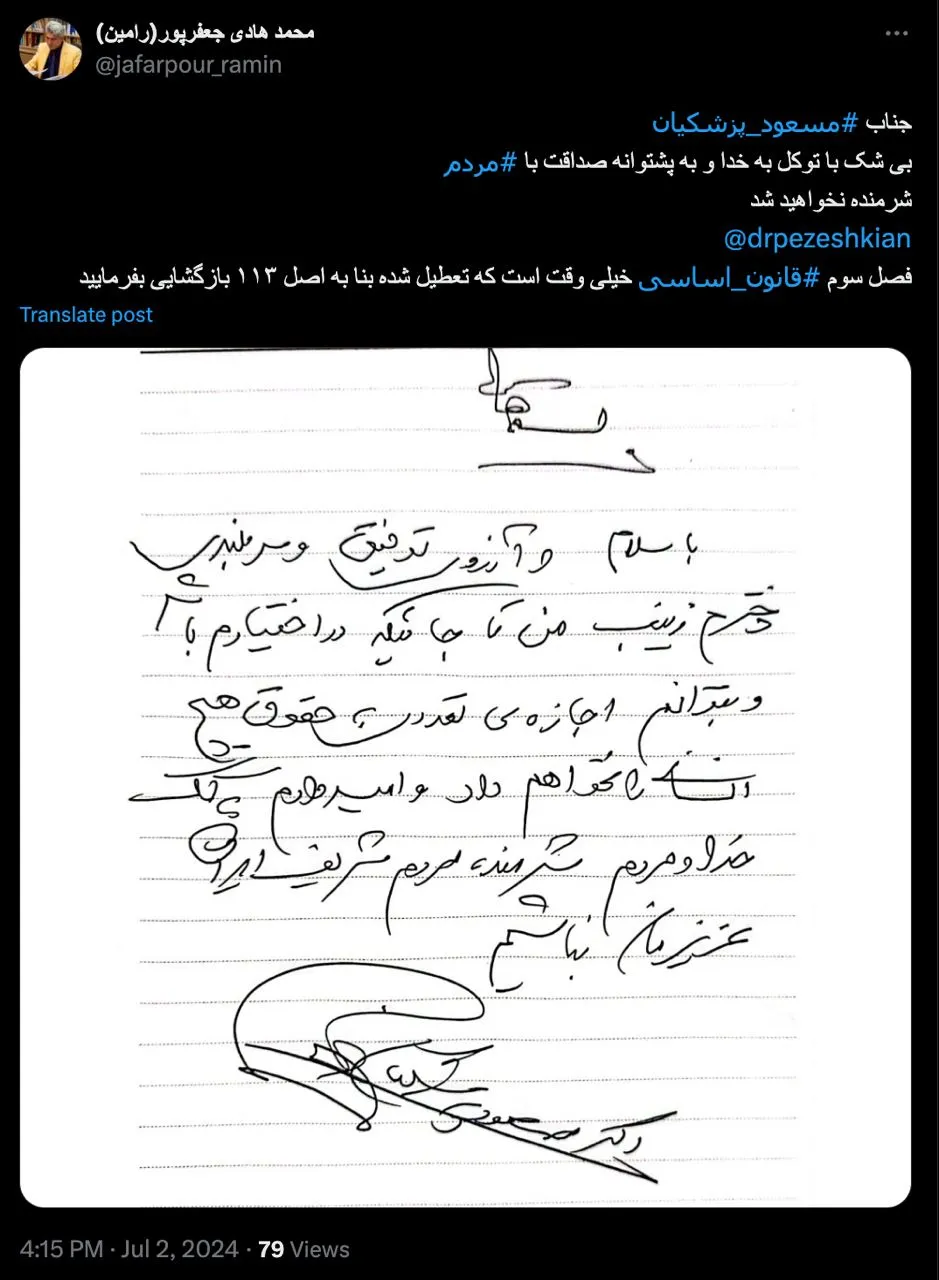 محمد هادی جعفرپور(رامین)
@jafarpour_ramin
جناب #مسعود_پزشکیان
بی شک با توکل به خدا و به پشتوانه صداقت با #مردم
شرمنده نخواهید شد
@drpezeshkian
فصل سوم #قانون_اساسی خیلی وقت است که تعطیل شده بنا به اصل ۱۱۳ بازگشایی بفرمایید
Translate post
با سلام و آرزوی توفیق و سربلندی
دخترم زینب من تا جائیکه در اختیارم باشد
و بتوانم اجازه‌ی تعدی به حقوق هیچ
انسانی را نخواهم داد و امیدوارم به کمک
خدا و مردم شرمنده مردم شریف ایران
عزیزمان نباشم
دکتر مسعود پزشکیان
4:15 PM · Jul 2, 2024 · 79 Views